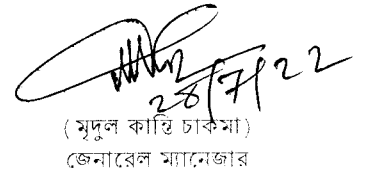 28/7/22
(মৃদুল কান্তি চাকমা)
জেনারেল ম্যানেজার